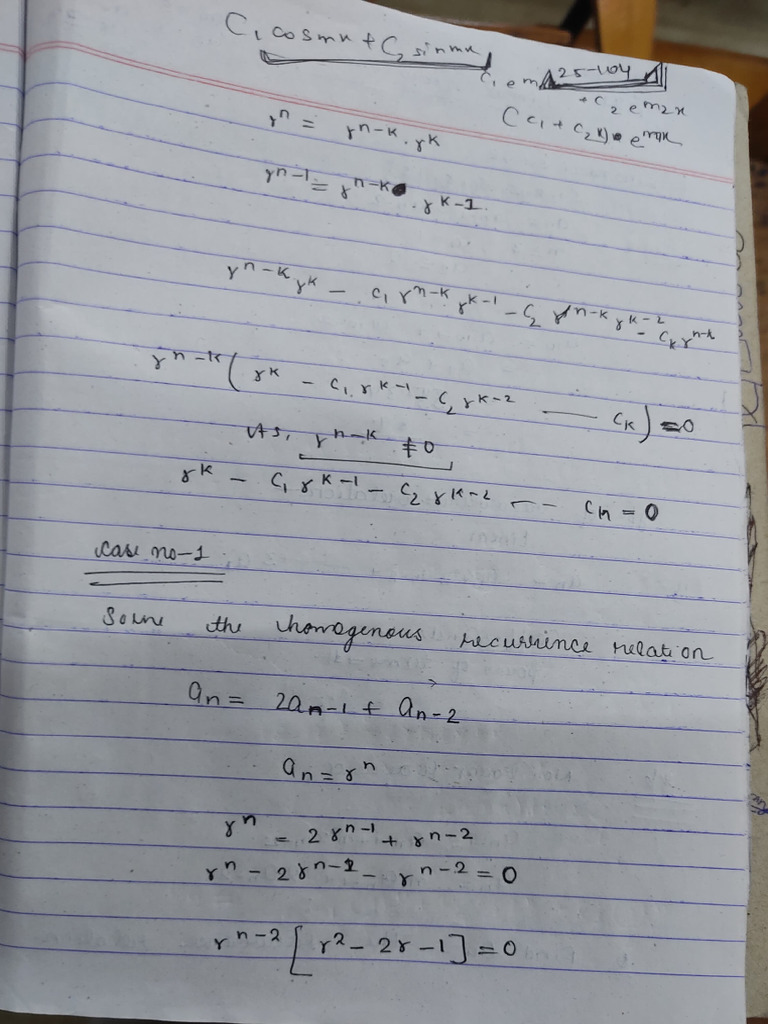 C₁ cosmx + C₂ sinmx
25-104
C₁ e m + C₂ e^m₂x
(C₁ + C₂x) • e^mx
r^n = r^n-k . r^k
r^n-1 = r^n-k . r^k-1
r^n-k r^k - C₁ r^n-k r^k-1 - C₂ r^n-k r^k-2 - C_k r^n-k
r^n-k ( r^k - C₁ r^k-1 - C₂ r^k-2 — C_k ) = 0
As, r^n-k ≠ 0
r^k - C₁ r^k-1 - C₂ r^k-2 -- C_k = 0
Case no-1
Solve the homogenous recurrince relation
a_n = 2a_n-1 + a_n-2
a_n = r^n
r^n = 2 r^n-1 + r^n-2
r^n - 2 r^n-1 - r^n-2 = 0
r^n-2 [ r² - 2r - 1 ] = 0